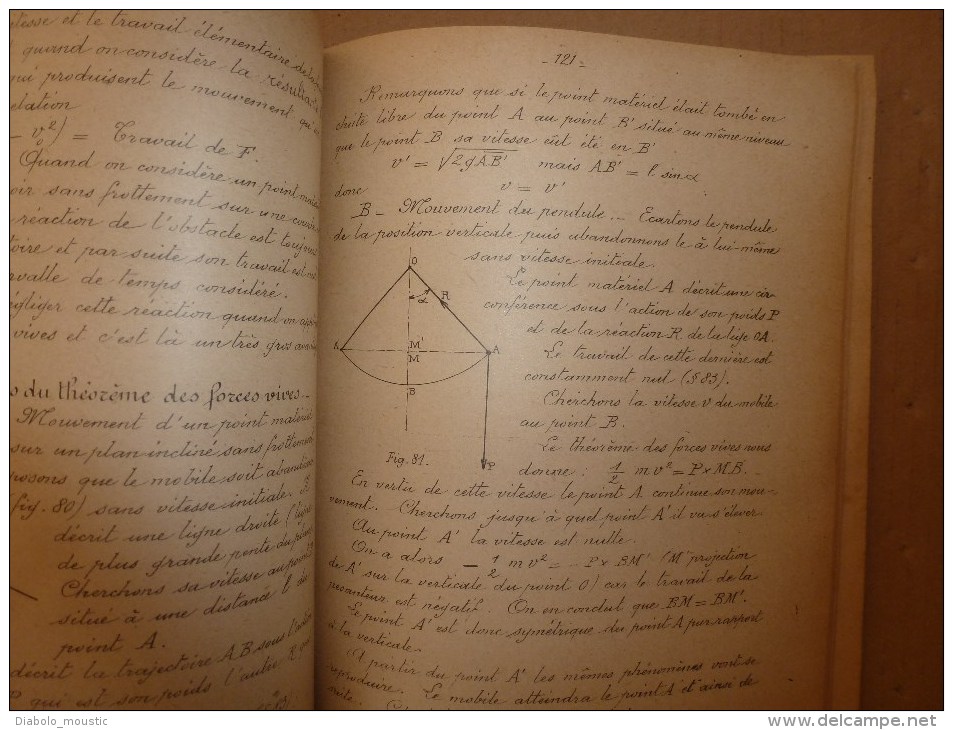 vitesse et le travail élémentaire de la
quand on considère la résultante
qui produisent le mouvement qu'
relation
- v²) = Travail de F.
0
Quand on considère un point
sans frottement sur une
réaction de l'obstacle est toujours
et par suite son travail est
de temps considéré.
négliger cette réaction quand on
vives et c'est là un très gros
du théorème des forces vives -
Mouvement d'un point matériel
sur un plan incliné sans frottement
que le mobile soit
(fig. 80) sans vitesse initiale. Il
décrit une ligne droite (ligne
de plus grande pente du plan
Cherchons sa vitesse au point
situé à une distance l du
point A.
décrit la trajectoire AB sous
qui est son poids l'autre
- 121 -
Remarquons que si le point matériel était tombé en
chute libre du point A au point B' situé au même niveau
que le point B sa vitesse eût été en B'
v' = √2gAB' mais AB' = l sin α
donc v = v'
B - Mouvement du pendule. - Ecartons le pendule
de la position verticale puis abandonnons le à lui-même
sans vitesse initiale.
Le point matériel A décrit une cir-
conférence sous l'action de son poids P
et de la réaction R de la tige OA.
Le travail de cette dernière est
constamment nul (§ 83).
Cherchons la vitesse v du mobile
au point B.
Le théorème des forces vives nous
donne : 1/2 m v² = P × MB. -
O
α
R
M'
M
A
B
P
Fig. 81.
En vertu de cette vitesse le point A continue son mou-
vement. Cherchons jusqu'à quel point A' il va s'élever.
Au point A' la vitesse est nulle.
On a alors - 1/2 m v² = - P × BM' (M' projection
de A' sur la verticale du point O) car le travail de la
pesanteur est négatif. On en conclut que BM = BM'.
Le point A' est donc symétrique du point A par rapport
à la verticale.
A partir du point A' les mêmes phénomènes vont se
reproduire. Le mobile atteindra le point A et ainsi de
suite.
Diabolo_moustic
www.delcampe.net